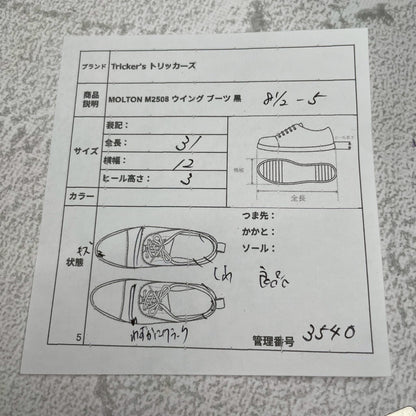 ブランド Tricker's トリッカーズ
商品説明 MOLTON M2508 ウイング ブーツ 黒 8½-5
サイズ
表記：
全長： 31
横幅： 12
ヒール高さ： 3
ヒール高さ
横幅
全長
カラー
状態
つま先：
かかと：
ソール：
しわ
わずかにクラック
5
管理番号 3540